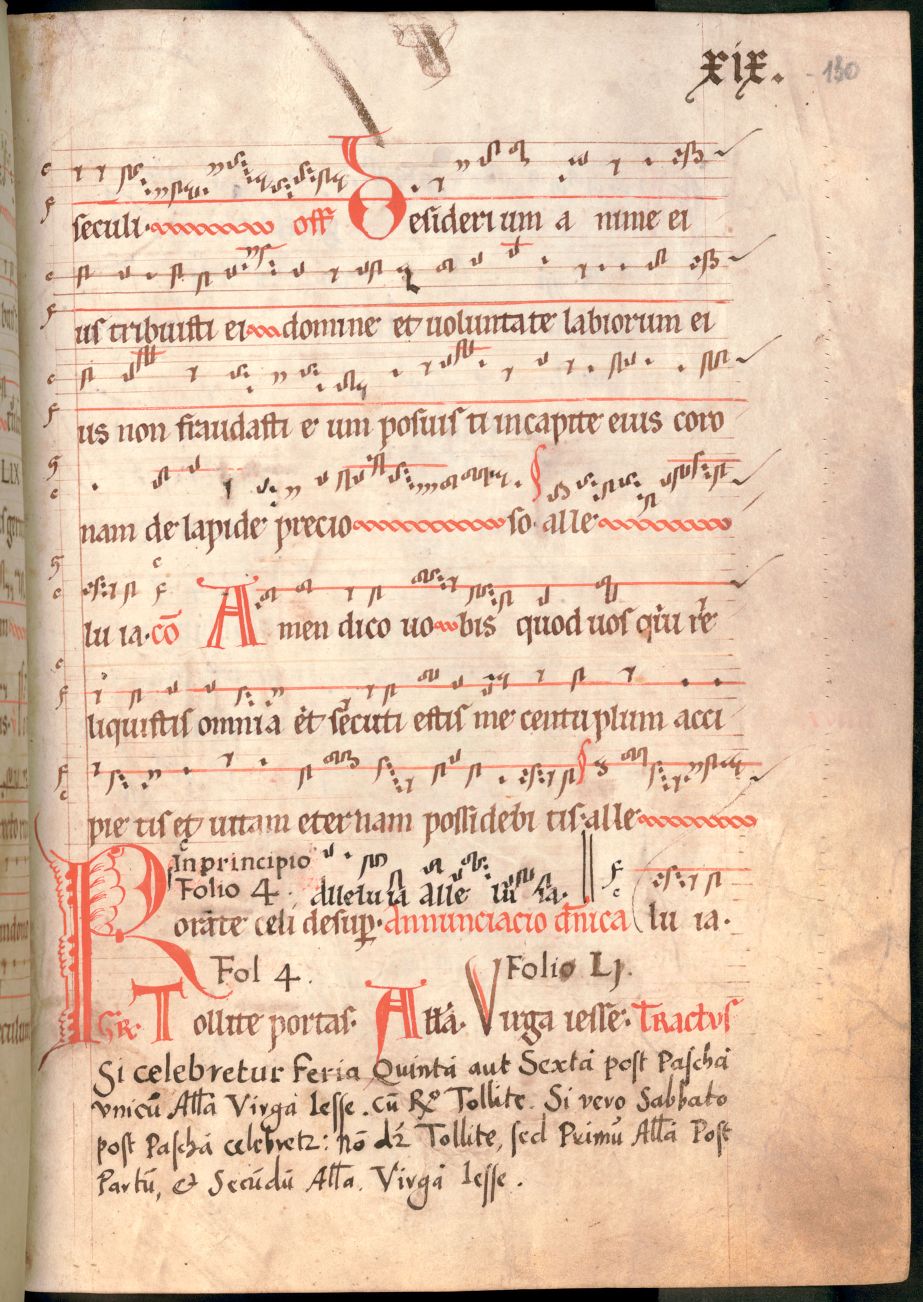 xix. 130
seculi. off Desiderium a nime ei
us tribuisti ei domine et uoluntate labiorum ei
us non fraudasti e um posuis ti incapite eius coro
nam de lapide precio so. alle
lu ia. cō Amen dico uo bis quod uos qui re
liquistis omnia et secuti estis me centuplum acci
pie tis et uitam eternam possidebi tis. alle
In principio
Folio 4. Alleluia Alle lu ia.
Rorate celi desup. Annunciacio dnica lu ia.
Fol 4. Folio LI.
GR. Tollite portas. Alla. Virga iesse. Tractus
Si celebretur Feria Quinta aut Sexta post Pascha
vnicū Alla Virga Iesse. cū R. Tollite. Si vero Sabbato
post Pascha celebretz: nō dz Tollite, sed Primū Alla Post
Partū, & Secūdū Alla. Virga Iesse.